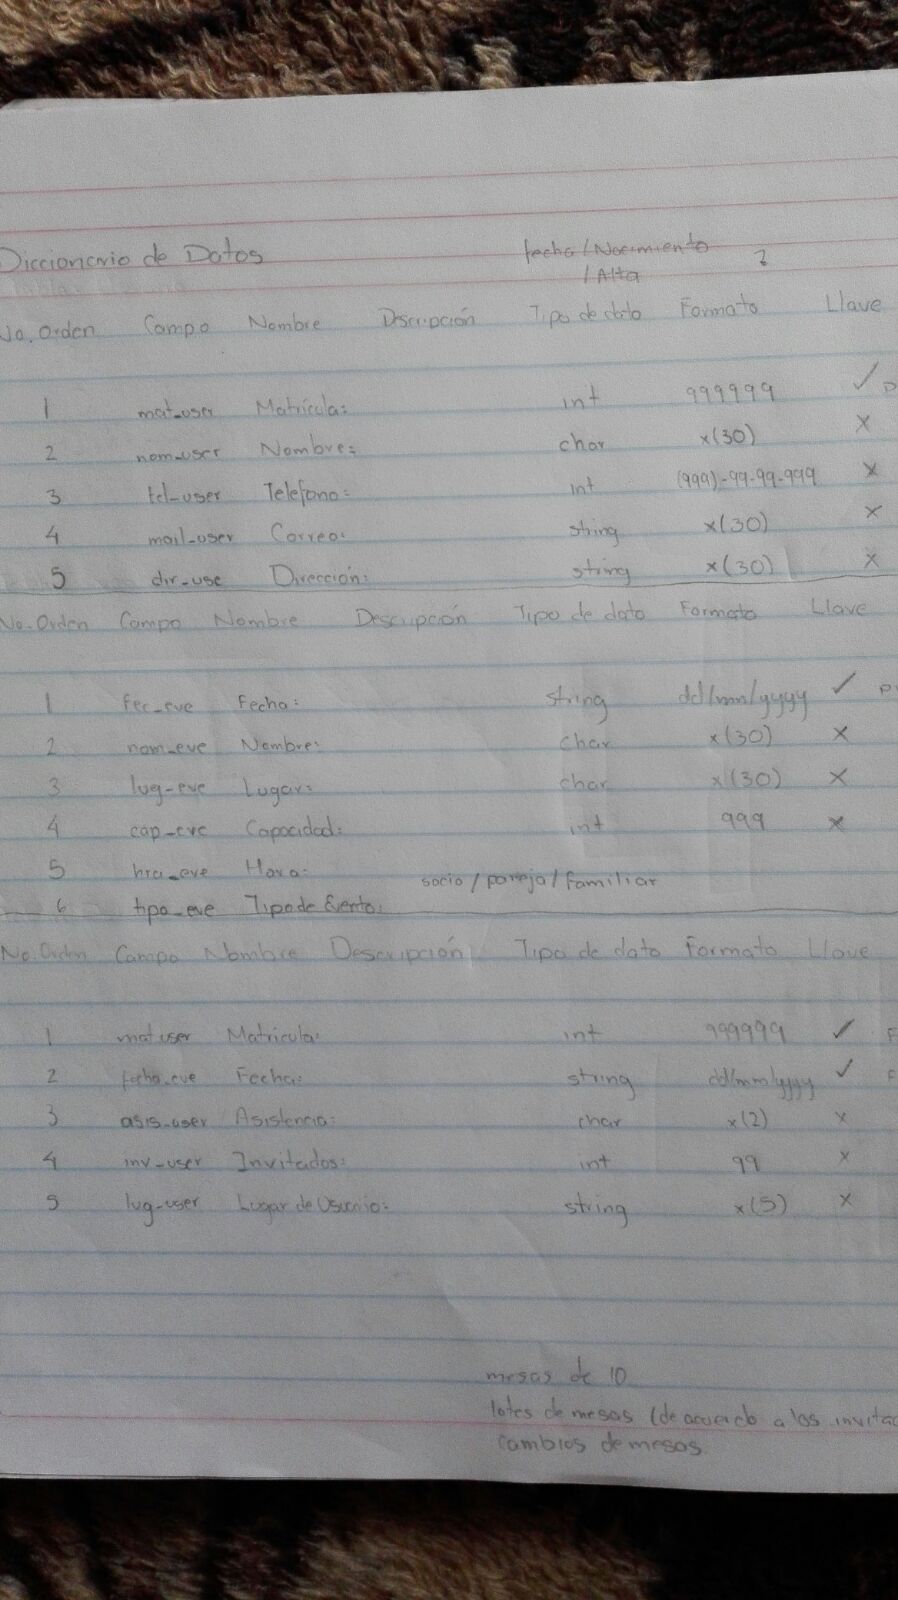 Diccionario de Datos fecha/Nacimiento
/Alta ?
No. Orden Campo Nombre Dscripción Tipo de dato Formato Llave
1 mat_user Matrícula: int 999999 ✓ P
2 nom_user Nombre: char x(30) x
3 tel-user Telefono: int (999)-99-99-999 x
4 mail-user Correo: string x(30) x
5 dir_use Dirección: string x(30) x
No. Orden Campo Nombre Descripción Tipo de dato Formato Llave
1 fec_eve Fecha: string dd/mm/yyyy ✓ P
2 nom_eve Nombre: char x(30) x
3 lug-eve Lugar: char x(30) x
4 cap_eve Capacidad: int 999 x
5 hra_eve Hora: socio/pareja/familiar
6 tipo_eve Tipo de Evento:
No. Orden Campo Nombre Descripción Tipo de dato Formato Llave
1 mat user Matricula: int 999999 ✓ F
2 fecha_eve Fecha: string dd/mm/yyyy ✓ F
3 asis_user Asistencia: char x(2) x
4 inv_user Invitados: int 99 x
5 lug-user Lugar de Usuario: string x(5) x
mesas de 10
lotes de mesas (de acuerdo a los invitac
cambios de mesas